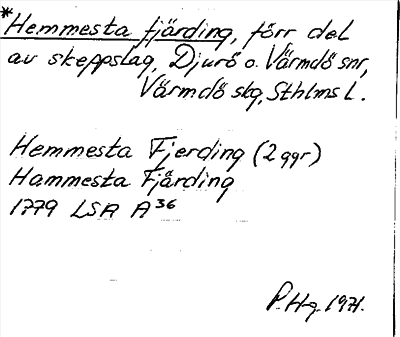 *Hemmesta fjärding, förr del
av skeppslag, Djurö o. Värmdö snr,
Värmdö sbg, Sthlms l.
Hemmesta Fjerding (2 ggr)
Hammesta Fjärding
1779 LSA A36
P.Hg. 1971.